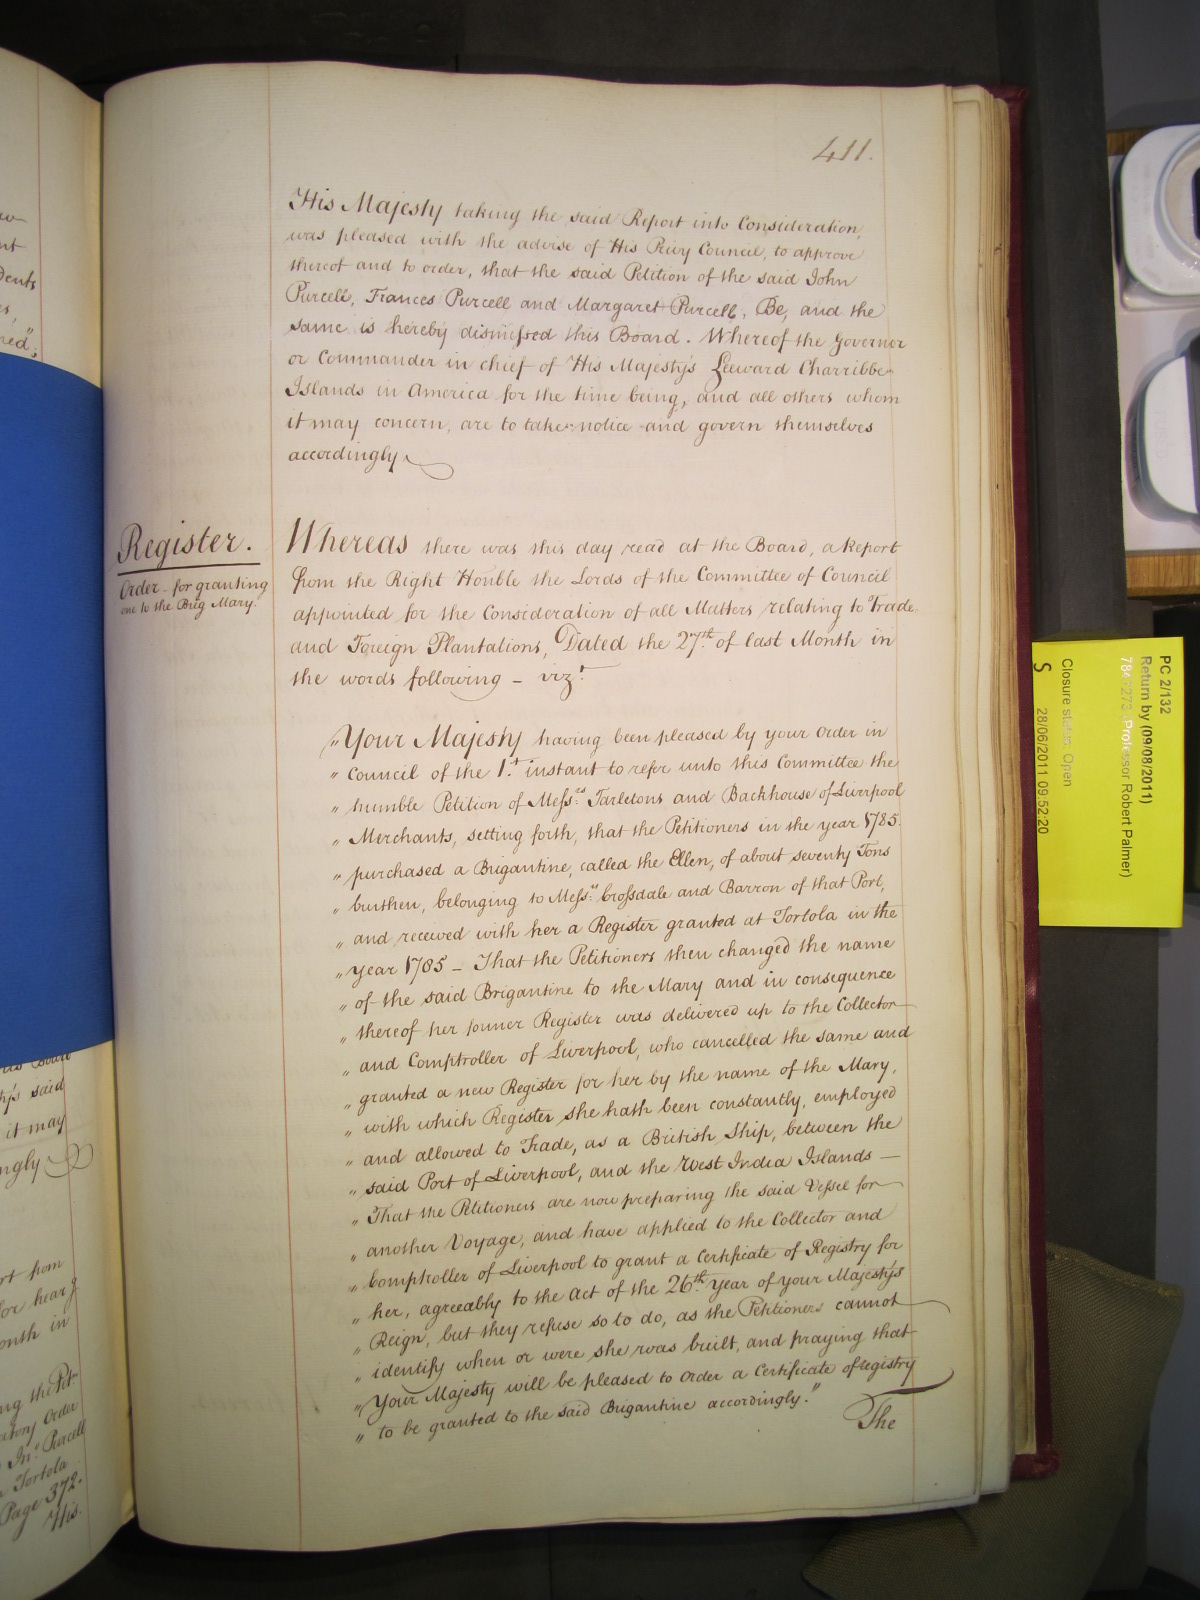 411.
His Majesty taking the said Report into Consideration,
was pleased with the advise of His Privy Council, to approve
thereof and to order, that the said Petition of the said John
Purcell, Frances Purcell and Margaret Purcell, Be, and the
same is hereby dismissed this Board. Whereof the Governor
or Commander in chief of His Majesty's Leeward Charribbe
Islands in America for the time being, and all others whom
it may concern, are to take notice and govern themselves
accordingly
Register.
Order for granting
one to the Brig Mary.
Whereas there was this day read at the Board, a Report
from the Right Honble the Lords of the Committee of Council
appointed for the Consideration of all Matters relating to Trade
and Foreign Plantations, Dated the 27th of last Month in
the words following – vizt
"Your Majesty having been pleased by your Order in
" Council of the 1st instant to refer unto this Committee the
" humble Petition of Messrs Tarletons and Backhouse of Liverpool
" Merchants, setting forth, that the Petitioners in the year 1785
" purchased a Brigantine, called the Ellen, of about seventy Tons
" burthen, belonging to Messrs Crossdale and Barron of that Port,
" and received with her a Register granted at Tortola in the
" year 1785 – That the Petitioners then changed the name
" of the said Brigantine to the Mary and in consequence
" thereof her former Register was delivered up to the Collector
" and Comptroller of Liverpool, who cancelled the same and
" granted a new Register for her by the name of the Mary,
" with which Register she hath been constantly, employed
" and allowed to Trade, as a British Ship, between the
" said Port of Liverpool, and the West India Islands —
" That the Petitioners are now preparing the said Vessel for
" another Voyage, and have applied to the Collector and
" Comptroller of Liverpool to grant a Certificate of Registry for
" her, agreeably to the Act of the 26th year of your Majesty's
" Reign, but they refuse so to do, as the Petitioners cannot
" identify when or were she was built, and praying that
" Your Majesty will be pleased to Order a Certificate of Registry
" to be granted to the said Brigantine accordingly."
The
PC 2/132
Return by (09/08/2011)
Professor Robert Palmer)
Closure status: Open
S 28/06/2011 09:52:20
said
it may
ngly
onth in
Purcell
Tortola
Page 372.
His